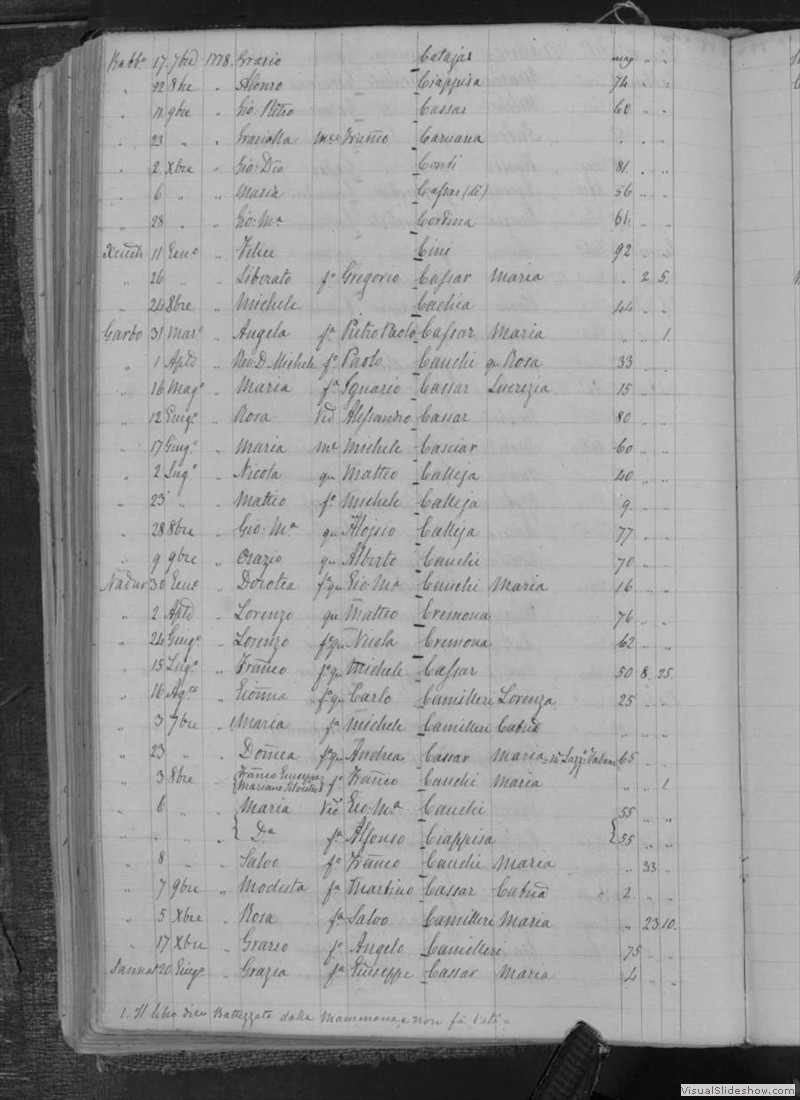 Rabb.o 17 7bre 1778. Grazio Catajar mag " "
" 22 8bre " Alonso Ciappisa 74 " "
" 11 9bre " Gio: Pietro Cassar 60 " "
" 23 " " Graziolla Franco Caruana " " "
" 2 Xbre " Gio: Conti 81 " "
" 6 " " Maria Cassar (di) 56 " "
" 28 " " Gio: Ma Cordina 61 " "
11 " Felice Cini 92 " "
" 26 " Liberato fo Gregorio Cassar Maria " 2 5.
" 24 8bre " Michele 44 " "
Garbo 31 Maro " Angela fa Pietro Paolo Cassar Maria " " 1.
" 1 " Rev. D. Michele fo Paolo Cauchi qu Rosa 33 " "
" 16 Mago " Maria fa Cassar Lucrezia 15 " "
" 12 Giugo " Rosa Ved Alessandro Cassar 80 " "
" 17 Giugo " Maria me Michele Casciar 60 " "
" 2 Lugo " Nicola qu Matteo Calleja 40 " "
" 23 " " Matteo fo Michele Calleja 9. " "
" 28 8bre " Gio: Ma qu Aloisio Calleja 77 " "
" 9 9bre " Orazio qu Alberto Cauchi 70 " "
Nadur 30 " Dorotea fa qu Gio: Ma Cauchi Maria 16 " "
" 2 " Lorenzo qu Matteo Cremona 76 " "
" 24 Giugo " Lorenzo fo qu Nicola Cremona 62 " "
" 15 Lugo " Franco fo qu Michele Cassar 50 8 25.
" 16 Agto " Gionna fa qu Carlo Camilleri Lorenza 25 " "
" 3 7bre " 1 Maria fa Michele Camilleri " " "
" 23 " " Domca fa qu Andrea Cassar Maria 65 " "
" 3 8bre " {Franco Giuseppe Mariano Silvestro} fo Franco Cauchi Maria " " 1
" 6 " " {Maria Ved Gio: Ma Cauchi 55 " "
" " " " {Da fa Alfonso Ciappisa {55 " "
" 8 " " Salvo fo Franco Cauchi Maria " 33 "
" 7 9bre " Modesta fa Martino Cassar 2 " "
" 5 Xbre " Rosa fa Salvo Camilleri Maria " 23 10.
" 17 Xbre " Grazio fo Angelo Camilleri 75 " "
Sannat 20 Giugo " Grazia fa Giuseppe Cassar Maria 4 " "
1. Il libro dice Battezzata dalla Mammana, e non fà l'età =
VisualSlideshow.com